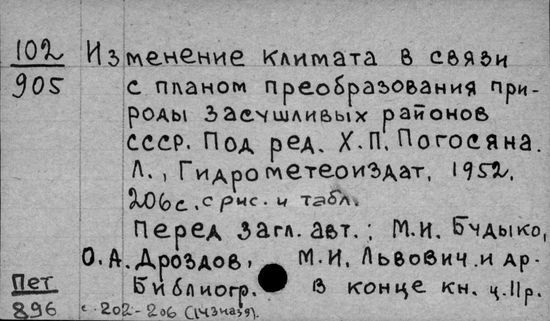 102 Изменение климата в связи
905 с планом преобразования при-
роды засушливых районов
СССР. Под ред. Х.П. Погосяна.
Л., Гидрометеоиздат, 1952.
206с. с рис. и табл.
Перед загл. авт.: М.И. Будыко,
О.А. Дроздов, М.И. Львович и др.
Библиогр. в конце кн. ц. 11р.
Пет
896 с. 202-206 (143 назв).